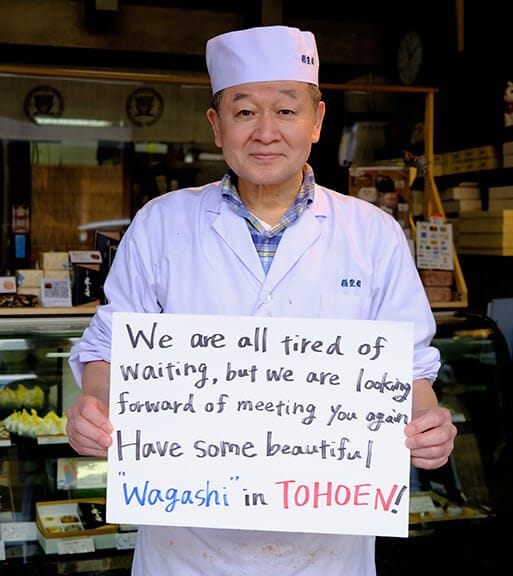 We are all tired of
waiting, but we are looking
forward of meeting you again
Have some beautiful
"Wagashi" in TOHOEN!